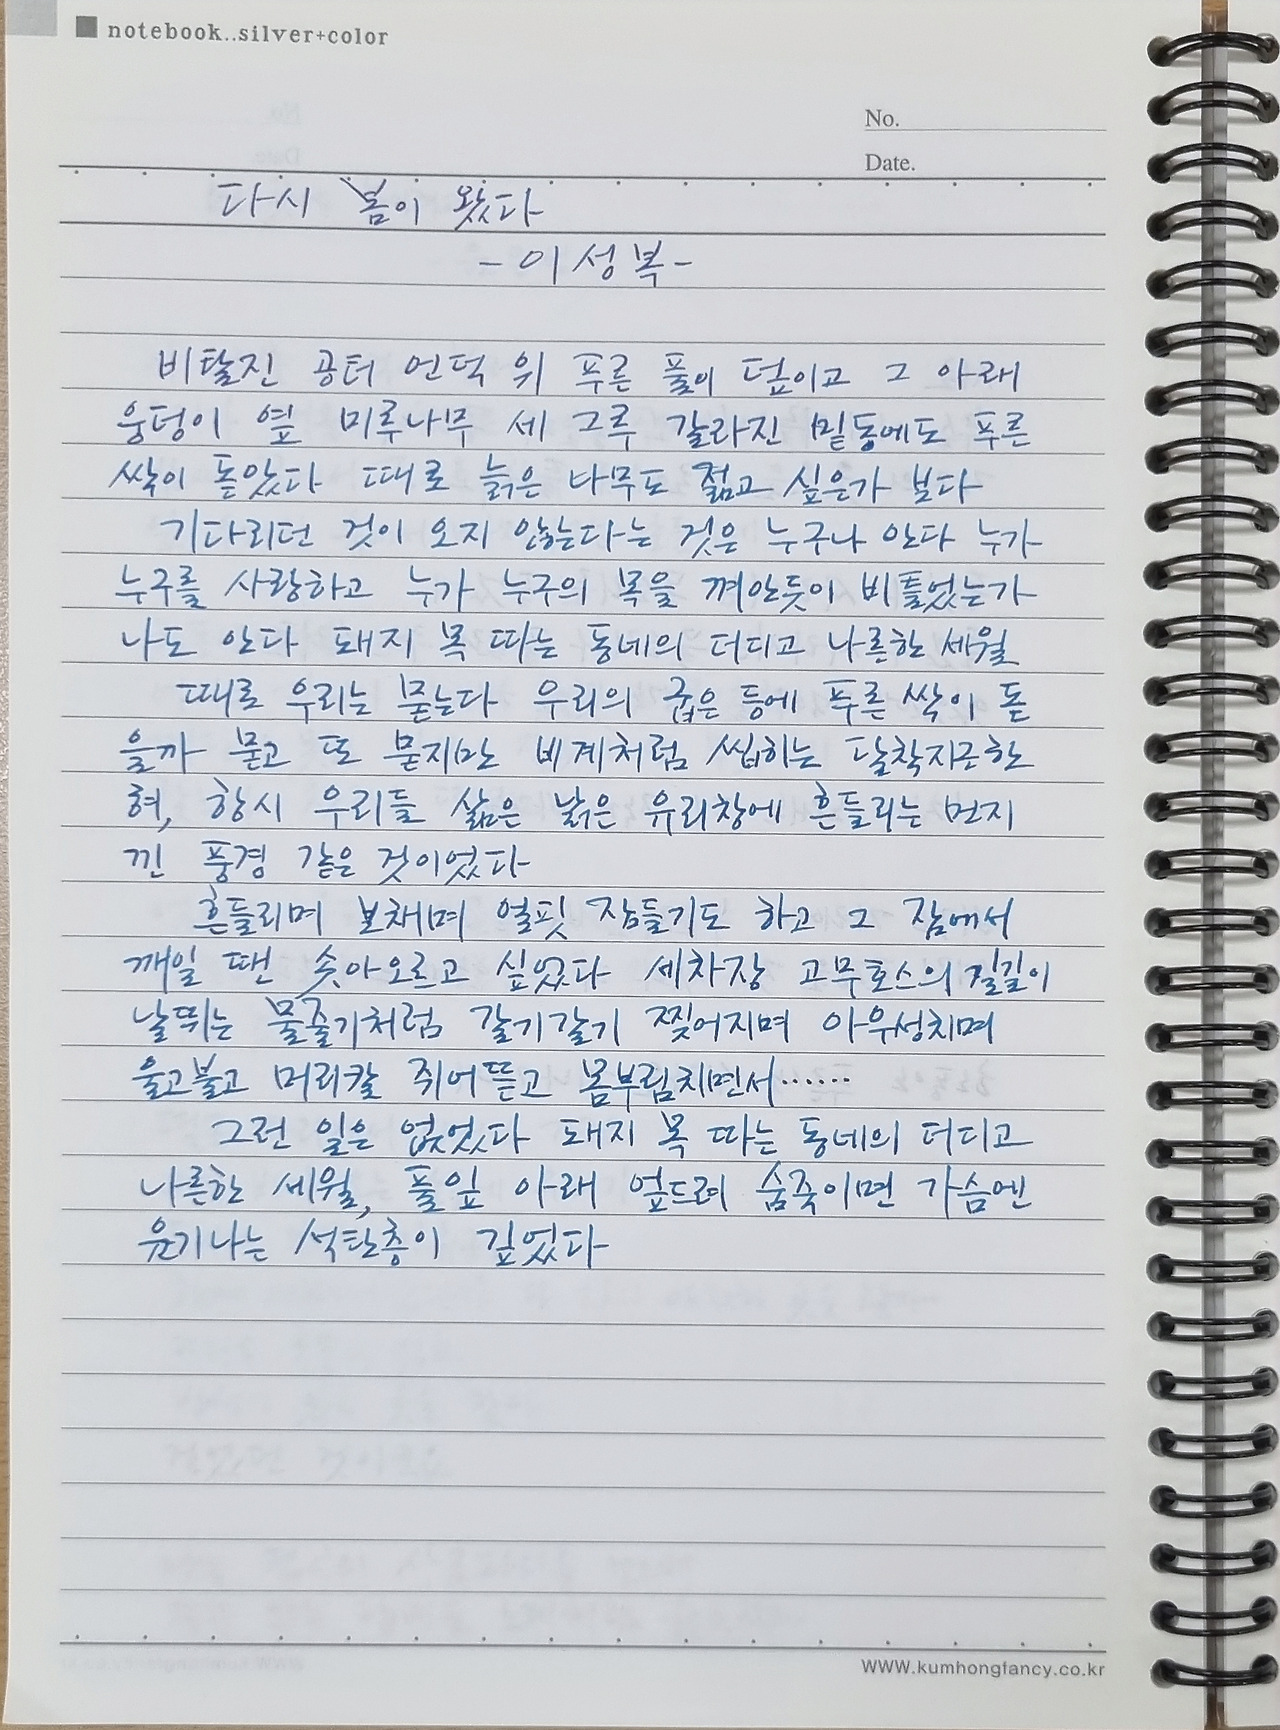 notebook..silver+color
No.
Date.
다시 봄이 왔다
- 이성복 -
비탈진 공터 언덕 위 푸른 풀이 덮이고 그 아래
웅덩이 옆 미루나무 세 그루 갈라진 밑동에도 푸른
싹이 돋았다 때로 늙은 나무도 젊고 싶은가 보다
기다리던 것이 오지 않는다는 것은 누구나 안다 누가
누구를 사랑하고 누가 누구의 목을 껴안듯이 비틀었는가
나도 안다 돼지 목 따는 동네의 더디고 나른한 세월
때로 우리는 묻는다 우리의 굽은 등에 푸른 싹이 돋
을까 묻고 또 묻지만 비계처럼 씹히는 달착지근한
혀, 항시 우리들 삶은 낡은 유리창에 흔들리는 먼지
낀 풍경 같은 것이었다
흔들리며 보채며 얼핏 잠들기도 하고 그 잠에서
깨일 땐 솟아오르고 싶었다 세차장 고무호스의 길길이
날뛰는 물줄기처럼 갈기갈기 찢어지며 아우성치며
울고불고 머리칼 쥐어뜯고 몸부림치면서……
그런 일은 없었다 돼지 목 따는 동네의 더디고
나른한 세월, 풀잎 아래 엎드려 숨죽이면 가슴엔
윤기나는 석탄층이 깊었다
WWW.kumhongfancy.co.kr